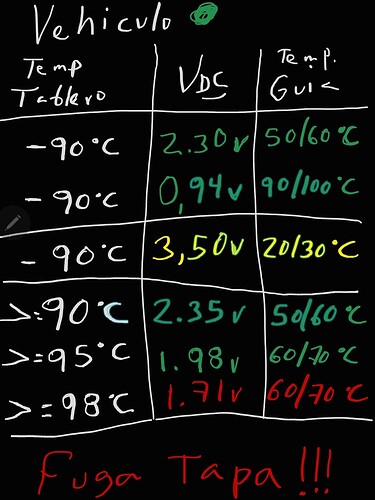 Vehiculo
Temp Tablero VDC Temp. Guia
-90°C 2.30v 50/60°C
-90°C 0,94v 90/100°C
-90°C 3,50v 20/30°C
>=90°C 2.35v 50/60°C
>=95°C 1.98v 60/70°C
>=98°C 1.71v 60/70°C
Fuga Tapa!!!